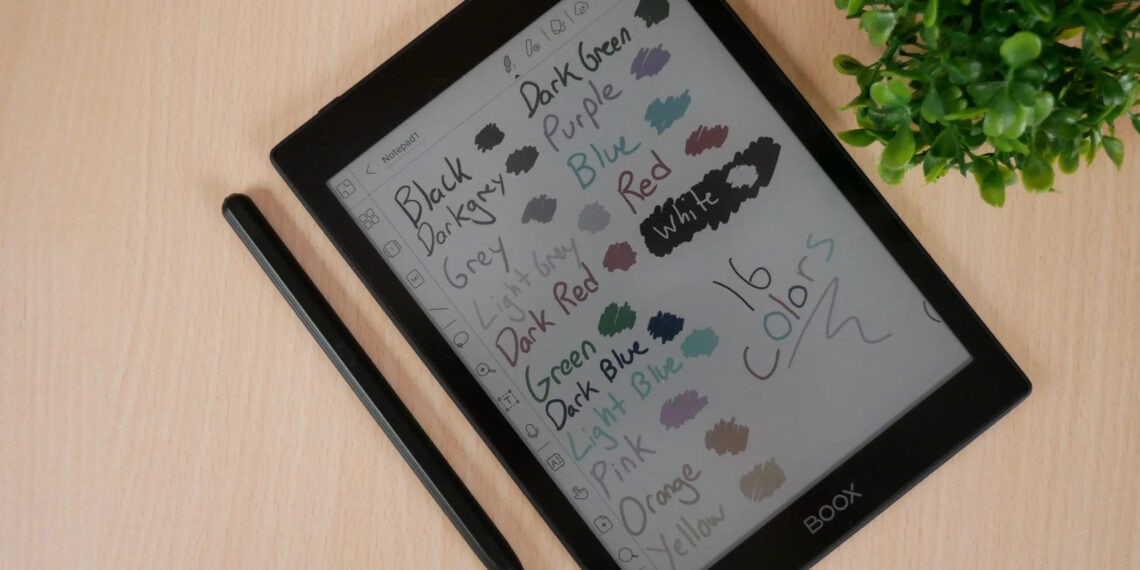 Notepad1
Black
Darkgrey
Grey
Light Grey
Dark Red
Green
Dark Blue
Light Blue
Pink
Orange
Yellow
Dark Green
Purple
Blue
Red
White
16
Colors
BOOX